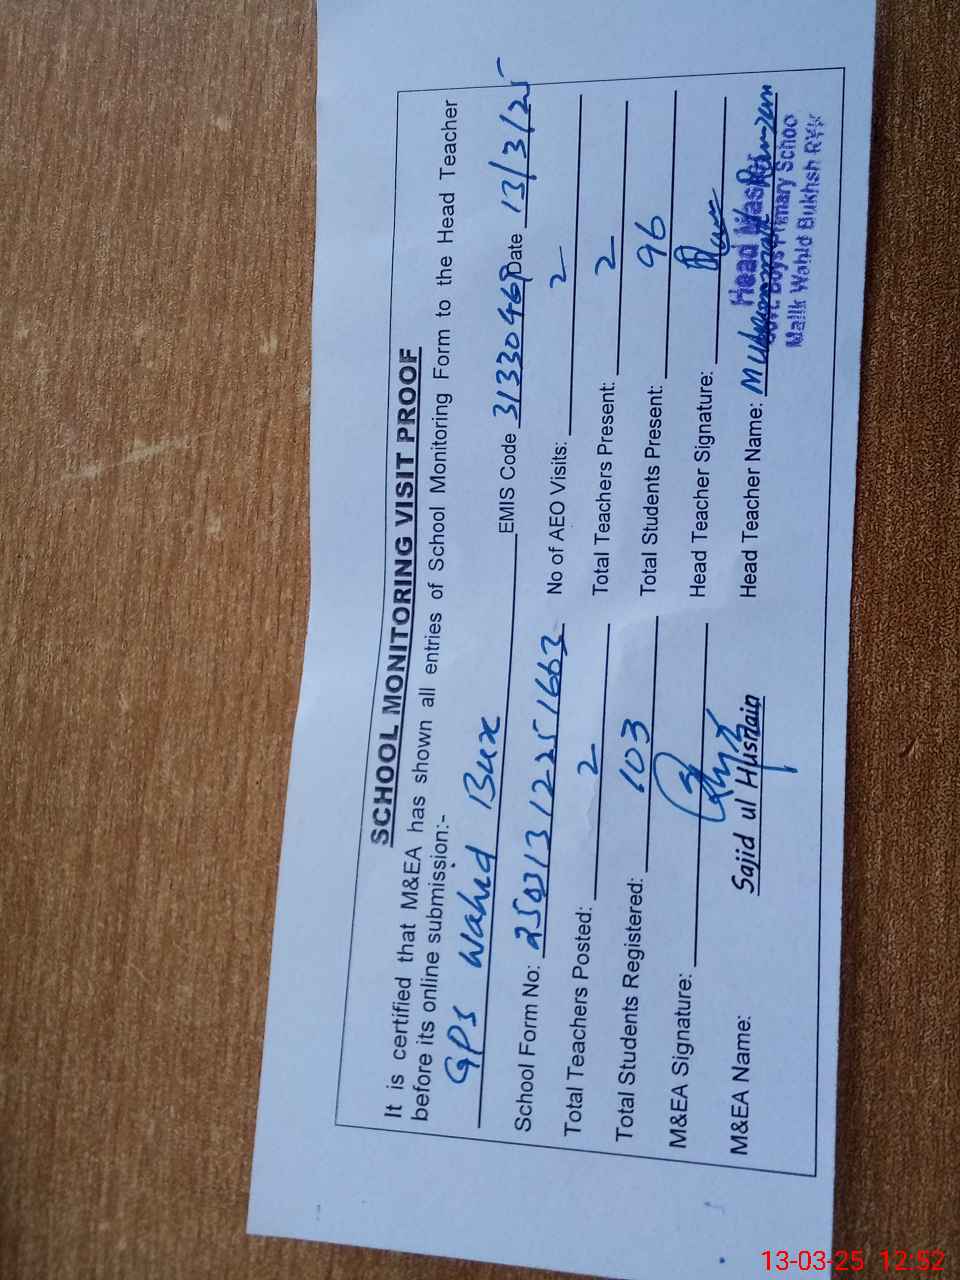 SCHOOL MONITORING VISIT PROOF
It is certified that M&EA has shown all entries of School Monitoring Form to the Head Teacher
before its online submission:-
GPS Wahid Bux EMIS Code 31330469 Date 13/3/25
School Form No: 25031312251663 No of AEO Visits: 2
Total Teachers Posted: 2 Total Teachers Present: 2
Total Students Registered: 103 Total Students Present: 96
M&EA Signature: Head Teacher Signature:
M&EA Name: Sajid ul Husnain Head Teacher Name: Muhammad Ramzan
Head Master
Govt. Boys Primary Schoo
Malik Wahid Bukhsh RYK
13-03-25 12:52